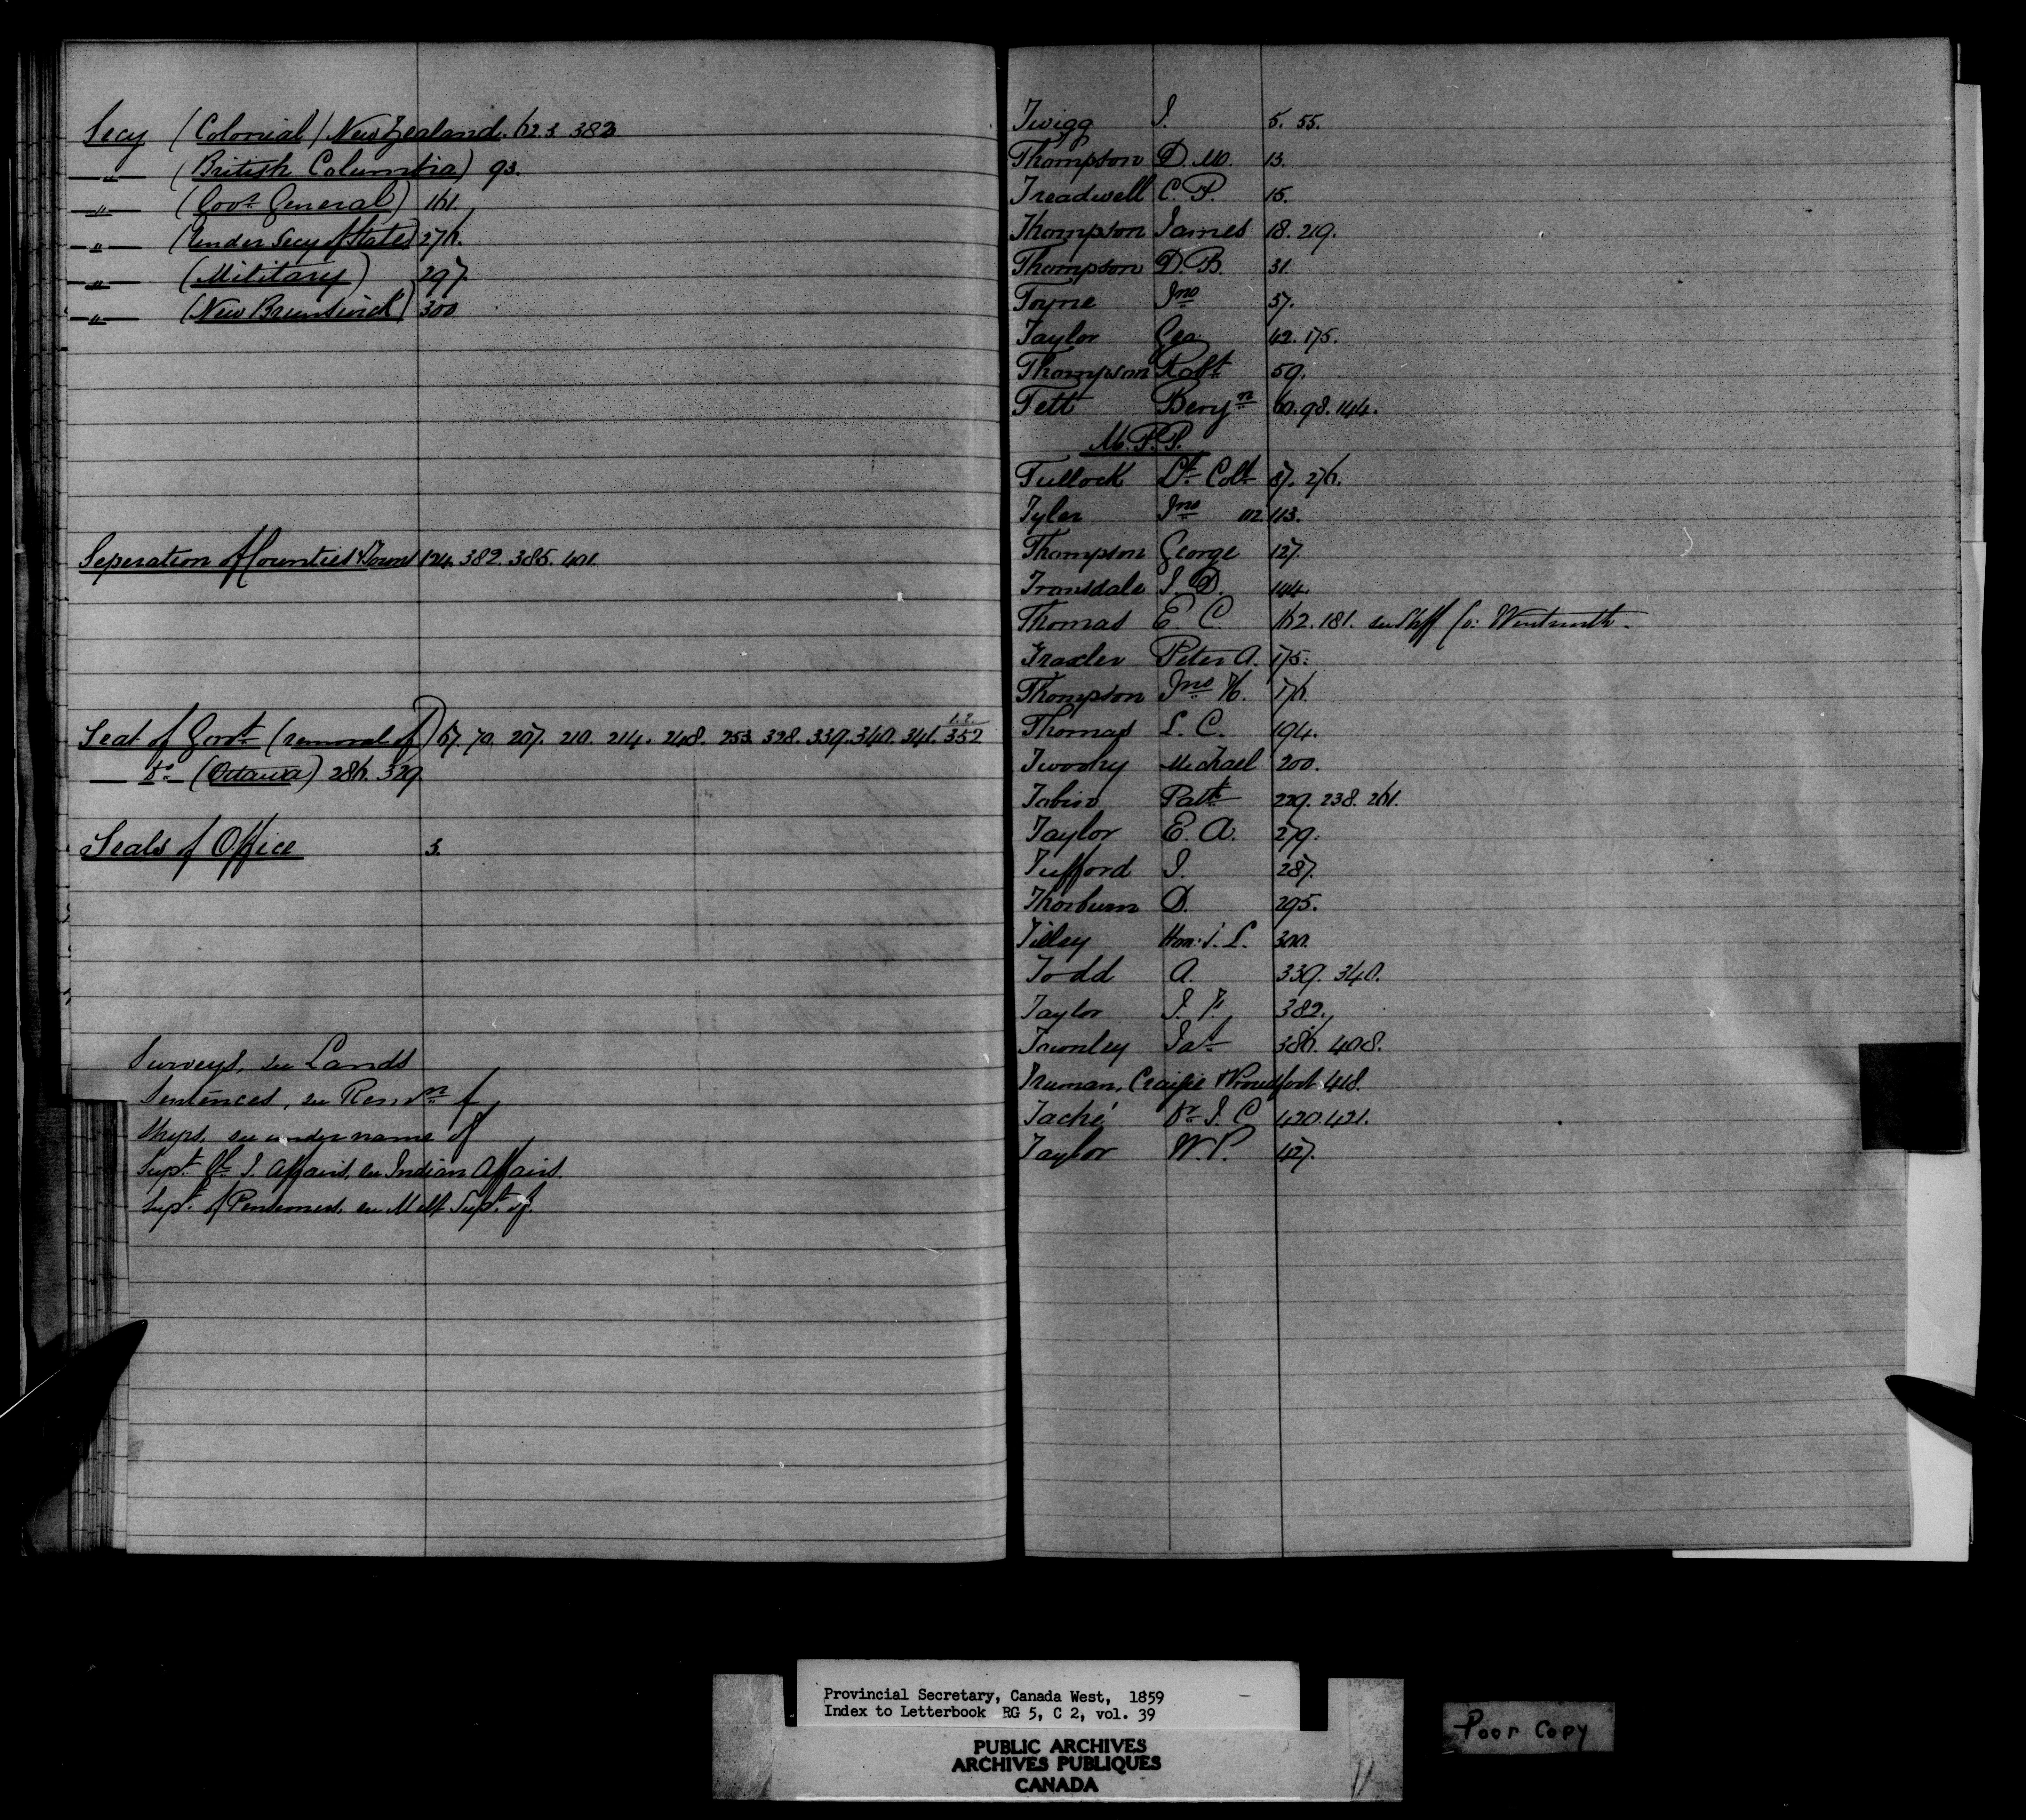 Secy (Colonial) New Zealand. 62.3. 383
—"— (British Columbia) 93.
—"— (Govr General) 161.
—"— (Under Secy of State) 276.
—"— (Military) 297.
—"— (New Brunswick) 300
Seperation of Counties & Towns 124. 382. 385. 401.
1.2.
Seat of Govt (removal of) 67. 70. 207. 210. 214. 248. 253. 328. 339. 340. 341. 352
— Do — (Ottawa) 286. 329.
Seals of Office 3.
Surveys, see Lands
Sentences, see Remn of
Ships, see under name of
Supt Gl I. Affairs, see Indian Affairs.
Supt of Pensioners, see Supt of.
Twigg J. 5. 55.
Thompson D. M. 13.
Treadwell C. P. 15.
Thompson James 18. 219.
Thompson D. B. 31.
Toyne Jno 37.
Taylor Geo. 42. 175.
Thompson Robt 59.
Tett Benjn 60. 98. 144.
M.P.P.
Tullock Lt Coll 87. 276.
Tyler Jno 112 113.
Thompson George 127.
Tronsdale J. D. 144.
Thomas E. C. 162. 181. see Shff Co: Wentworth.
Traxler Peter A. 175.
Thompson Jno H. 176.
Thomas L. C. 194.
Twoohy Michael 200.
Tobin Patk 229. 238. 261.
Taylor E. A. 279.
Tufford J. 287.
Thorburn D. 295.
Tilley Hon: S. L. 300.
Todd A. 339. 340.
Taylor J. F. 382.
Townley Jas 386. 408.
Truman, Craigie & Proudfoot 418.
Taché Dr J. C. 420. 421.
Taylor W. P. 427.
Provincial Secretary, Canada West, 1859
Index to Letterbook RG 5, C 2, vol. 39
PUBLIC ARCHIVES
ARCHIVES PUBLIQUES
CANADA
Poor Copy